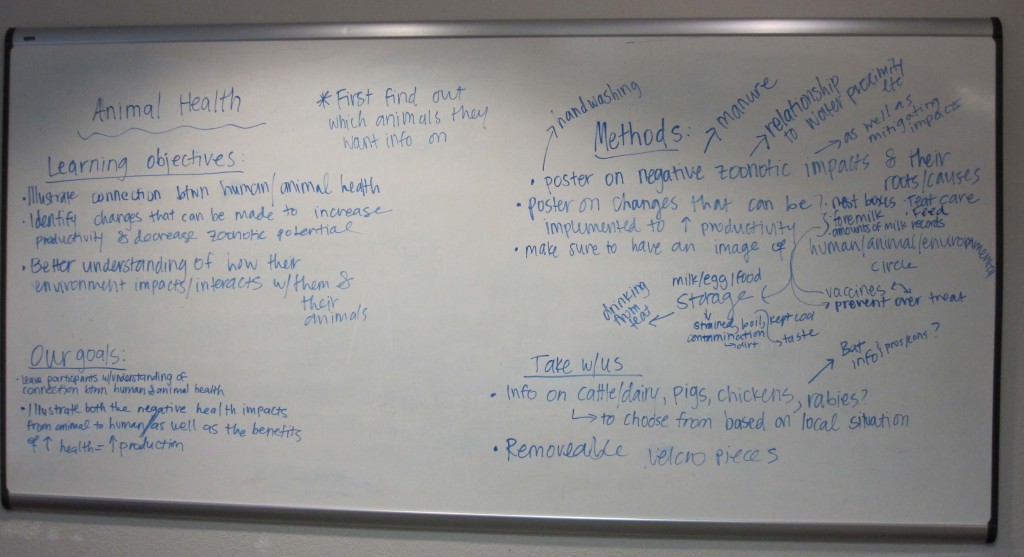 Animal Health
* First find out
which animals they
want info on
Learning objectives:
• Illustrate connection btwn human/animal health
• Identify changes that can be made to increase
productivity & decrease zoonotic potential
• Better understanding of how their
environment impacts/interacts w/them &
their
animals
Our goals:
• Leave participants w/understanding of
connection btwn human & animal health
• Illustrate both the negative health impacts
from animal to human/as well as the benefits
of ↑ health = ↑ production
Methods:
handwashing
manure
relationship
to water proximity
etc
as well as
mitigating
impacts
• poster on negative zoonotic impacts & their
roots/causes
• poster on changes that can be
implemented to ↑ productivity
• nest boxes • Teat care
• foremilk • Feed
• amounts of milk records
• make sure to have an image of
human/animal/environment
circle
milk/egg/food
Storage
drinking
from
teat
strained, boil, kept cool
contamination
dirt
taste
vaccines
prevent over treat
Take w/us
• Info on cattle/dairy, pigs, chickens, rabies?
to choose from based on local situation
Bat
info
pros/cons?
• Removeable velcro pieces